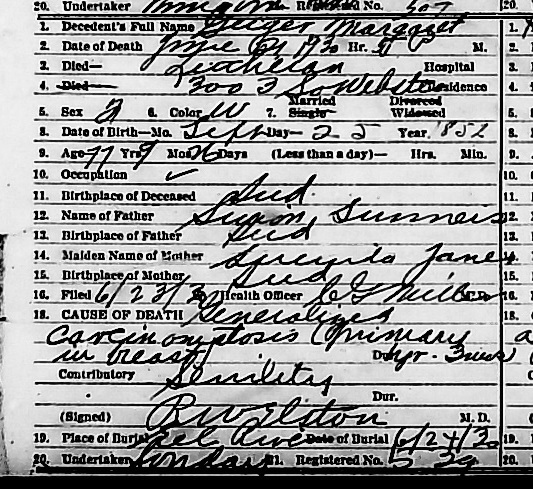 20. Undertaker No. 507 20.
1. Decedent's Full Name Geiger Margaret 1.
2. Date of Death June 21 1930 Hr. P M. 2.
3. Died— Lutheran Hospital 3.
4. Died— 3003 So Webster Residence 4.
5. Sex 6. Color W 7. Married Single Divorced Widowed 5.
8. Date of Birth—Mo. Sept Day— 25 Year 1852 8.
9. Age 77 Yrs 9 Mo. 26 Days (Less than a day)— Hrs. Min. 9.
10. Occupation ✓ 10.
11. Birthplace of Deceased Ind 11.
12. Name of Father 12.
13. Birthplace of Father Ind 13.
14. Maiden Name of Mother Jane 14.
15. Birthplace of Mother Ind 15.
16. Filed 6/23/30 Health Officer C G M.D. 16.
18. CAUSE OF DEATH Generalized 18.
carcinomatosis (primary
in breast) Dur. yr. 3
Contributory Senility
Dur.
(Signed) R W Elston M. D.
19. Place of Burial Date of Burial 6/24/30 19.
20. Undertaker 21. Registered No. 20.